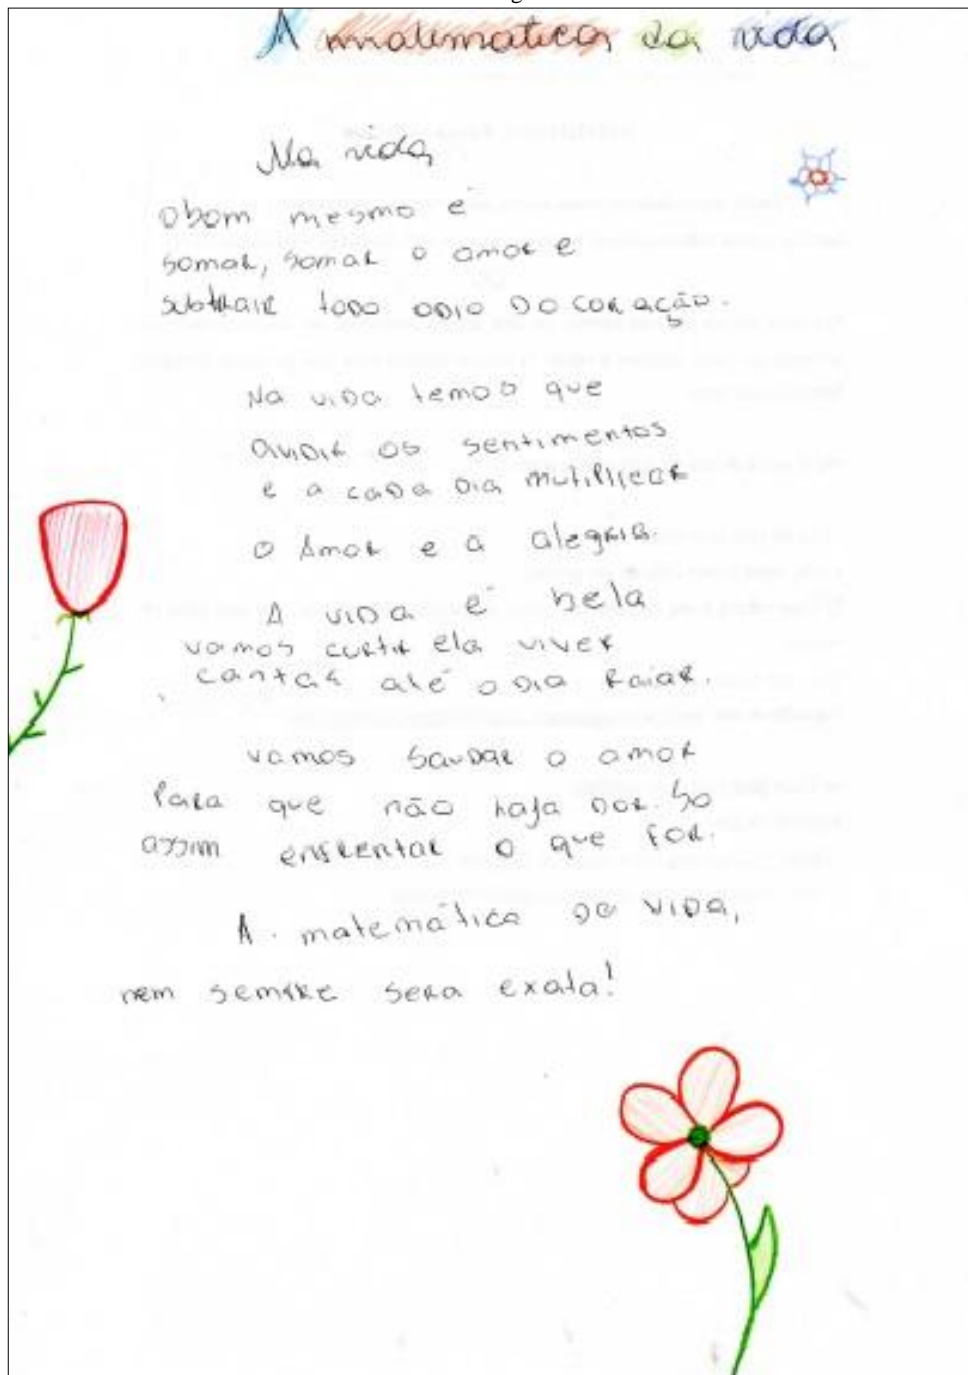 A matematica da vida
Na vida
O bom mesmo é
somar, somar o amor e
subtrair todo odio do coração.
Na vida temos que
dividir os sentimentos
e a cada dia mutiplicar
o Amor e a alegria.
A vida é bela
vamos curtir ela viver
cantar até o dia raiar.
vamos saudar o amor
Para que não haja dor. So
assim enfrentar o que for.
A matemática da vida,
nem sempre sera exata!